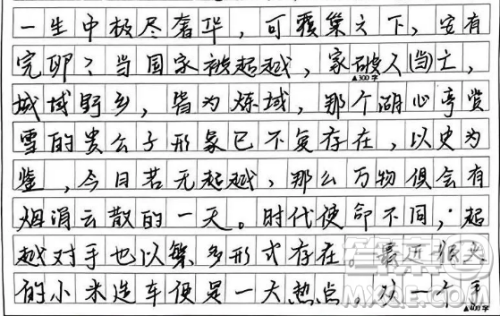 一生中极尽奢华，可覆巢之下，安有
完卵？当国家被超越，家破人亡，
▲300字
城域野乡，皆为炼域，那个湖心亭赏
雪的贵公子形象已不复存在，以史为
鉴，今日若无超越，那么万物俱会有
烟消云散的一天。时代使命不同，超
越对手也以繁多形式存在 最近很火
的小米造车便是一大热点。从一个手